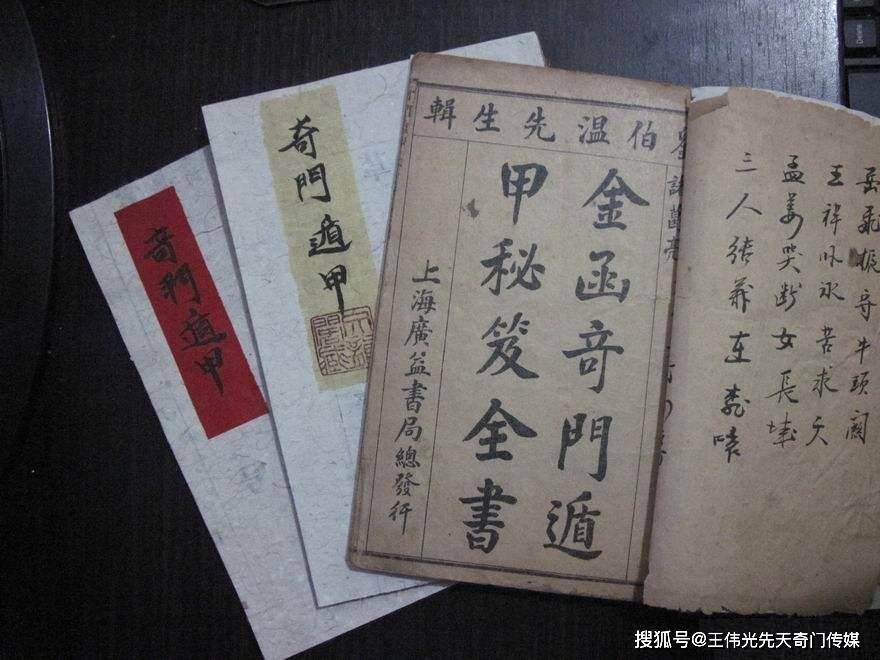 奇門遁甲
奇門遁甲
劉伯溫先生輯
諸葛亮
金函奇門遁
甲秘笈全書
上海廣益書局總發行
岳飛振守牛頭
王祥卧冰苦求天
孟姜哭断女長城
三人結義在桃
搜狐号@王伟光先天奇门传媒
Delete